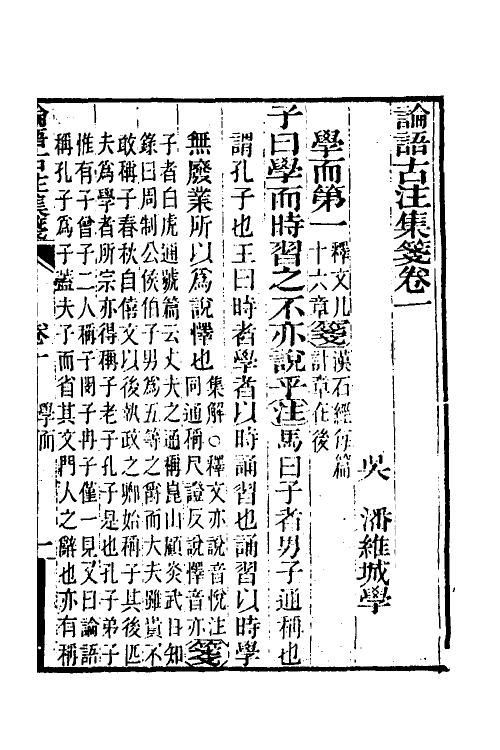 論語古注集箋卷一
吳 潘維城學
學而第一 釋文凡十六章 箋 漢石經每篇計章在後
子曰學而時習之不亦說乎 注 馬曰子者男子通稱也
謂孔子也王曰時者學者以時誦習也誦習以時學
無廢業所以爲說懌也 集解○釋文亦說音悅注同通稱尺證反說懌音亦 箋
子者白虎通號篇云丈夫之通稱崑山顧炎武日知
錄曰周制公侯伯子男爲五等之爵而大夫雖貴不
敢稱子春秋自僖文以後執政之卿始稱子其後匹
夫爲學者所宗亦得稱子老子孔子是也孔子弟子
惟有子曾子二人稱子閔子冉子僅一見又曰論語
稱孔子爲子蓋夫子而省其文門人之辭也亦有稱
論語古注集箋 卷一 學而 一